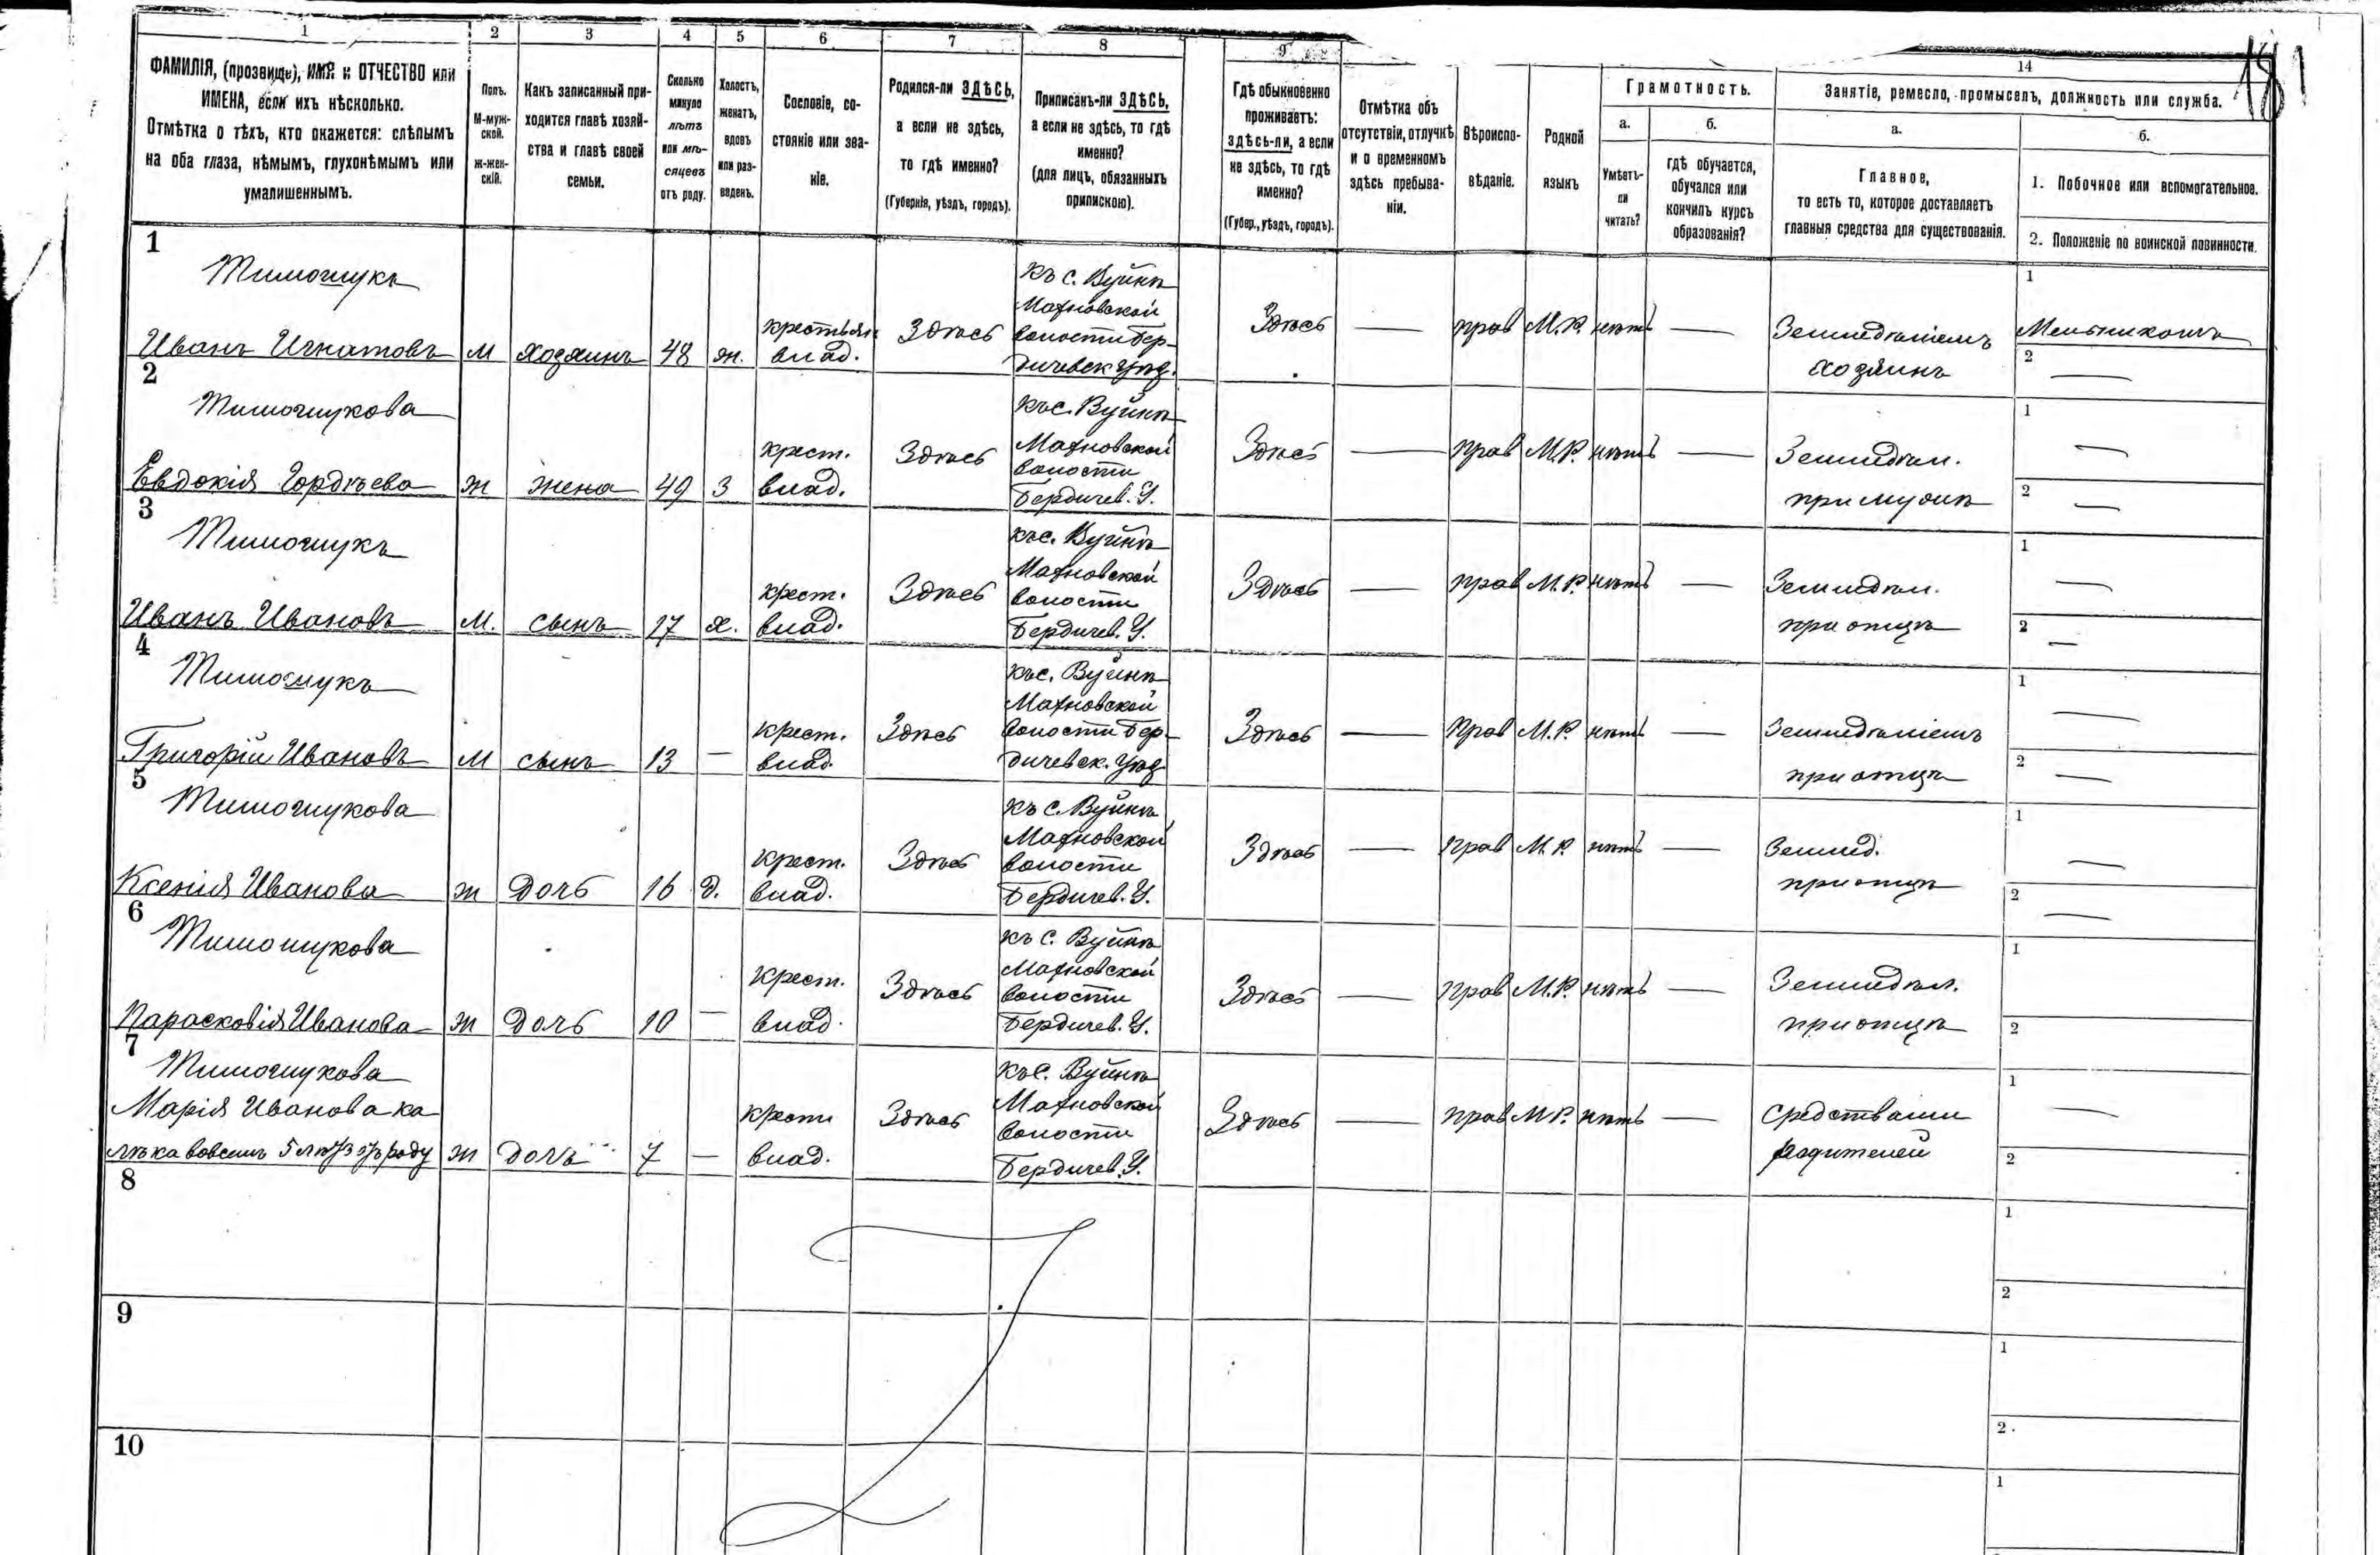 181
1
2
3
4
5
6
7
8
9
14
ФАМИЛІЯ, (прозвище), ИМЯ и ОТЧЕСТВО или
ИМЕНА, если ихъ нѣсколько.
Отмѣтка о тѣхъ, кто окажется: слѣпымъ
на оба глаза, нѣмымъ, глухонѣмымъ или
умалишеннымъ.
Полъ.
М-муж-
ской.
ж-жен-
скій.
Какъ записанный при-
ходится главѣ хозяй-
ства и главѣ своей
семьи.
Сколько
минуло
лѣтъ
или мѣ-
сяцевъ
отъ роду.
Холостъ,
женатъ,
вдовъ
или раз-
веденъ.
Сословіе, со-
стояніе или зва-
ніе.
Родился-ли ЗДѢСЬ,
а если не здѣсь,
то гдѣ именно?
(Губернія, уѣздъ, городъ).
Приписанъ-ли ЗДѢСЬ,
а если не здѣсь, то гдѣ
именно?
(для лицъ, обязанныхъ
припискою).
Гдѣ обыкновенно
проживаетъ:
здѣсь-ли, а если
не здѣсь, то гдѣ
именно?
(Губер., уѣздъ, городъ).
Отмѣтка объ
отсутствіи, отлучкѣ
и о временномъ
здѣсь пребыва-
ніи.
Вѣроиспо-
вѣданіе.
Родной
языкъ
Грамотность.
а.
Умѣетъ-
ли
читать?
б.
гдѣ обучается,
обучался или
кончилъ курсъ
образованія?
Занятіе, ремесло, промыселъ, должность или служба.
а.
Главное,
то есть то, которое доставляетъ
главныя средства для существованія.
б.
1. Побочное или вспомогательное.
2. Положеніе по воинской повинности.
1
Тимощукъ
Иванъ Игнатовъ
М
хозяинъ
48
ж.
крестьян.
влад.
Здѣсь
къ с. Вуйнѣ
Махновской
волости Бер-
дичевск. Уѣзд.
Здѣсь
—
прав
М.Р.
нѣтъ
—
Земледѣліемъ
хозяинъ
1
Мельникомъ
2
—
2
Тимощукова
Евдокія Гордѣева
ж
жена
49
з
крест.
влад.
Здѣсь
къ с. Вуйнѣ
Махновской
волости
Бердичев. У.
Здѣсь
—
прав
М.Р.
нѣтъ
—
Земледѣл.
при мужѣ
1
—
2
—
3
Тимощукъ
Иванъ Ивановъ
М.
сынъ
17
х.
крест.
влад.
Здѣсь
къ с. Вуйнѣ
Махновской
волости
Бердичев. У.
Здѣсь
—
прав
М.Р.
нѣтъ
—
Земледѣл.
при отцѣ
1
—
2
—
4
Тимощукъ
Григорій Ивановъ
М
сынъ
13
—
крест.
влад.
Здѣсь
къ с. Вуйнѣ
Махновской
волости Бер-
дичевск. Уѣзд
Здѣсь
—
прав
М.Р.
нѣтъ
—
Земледѣліемъ
при отцѣ
1
—
2
—
5
Тимощукова
Ксенія Иванова
ж
дочь
16
д.
крест.
влад.
Здѣсь
къ с. Вуйнѣ
Махновской
волости
Бердичев. У.
Здѣсь
—
прав
М.Р.
нѣтъ
—
Землед.
при отцѣ
1
—
2
—
6
Тимощукова
Парасковія Иванова
ж
дочь
10
—
крест.
влад.
Здѣсь
къ с. Вуйнѣ
Махновской
волости
Бердичев. У.
Здѣсь
—
прав
М.Р.
нѣтъ
—
Земледѣл.
при отцѣ
1
2
7
Тимощукова
Марія Иванова ка
лѣка 5 роду
ж
дочь
7
—
крест
влад.
Здѣсь
къ с. Вуйнѣ
Махновской
волости
Бердичев. У.
Здѣсь
—
прав
М.Р.
нѣтъ
—
средствами
родителей
1
—
2
8
1
2
9
1
2.
10
1